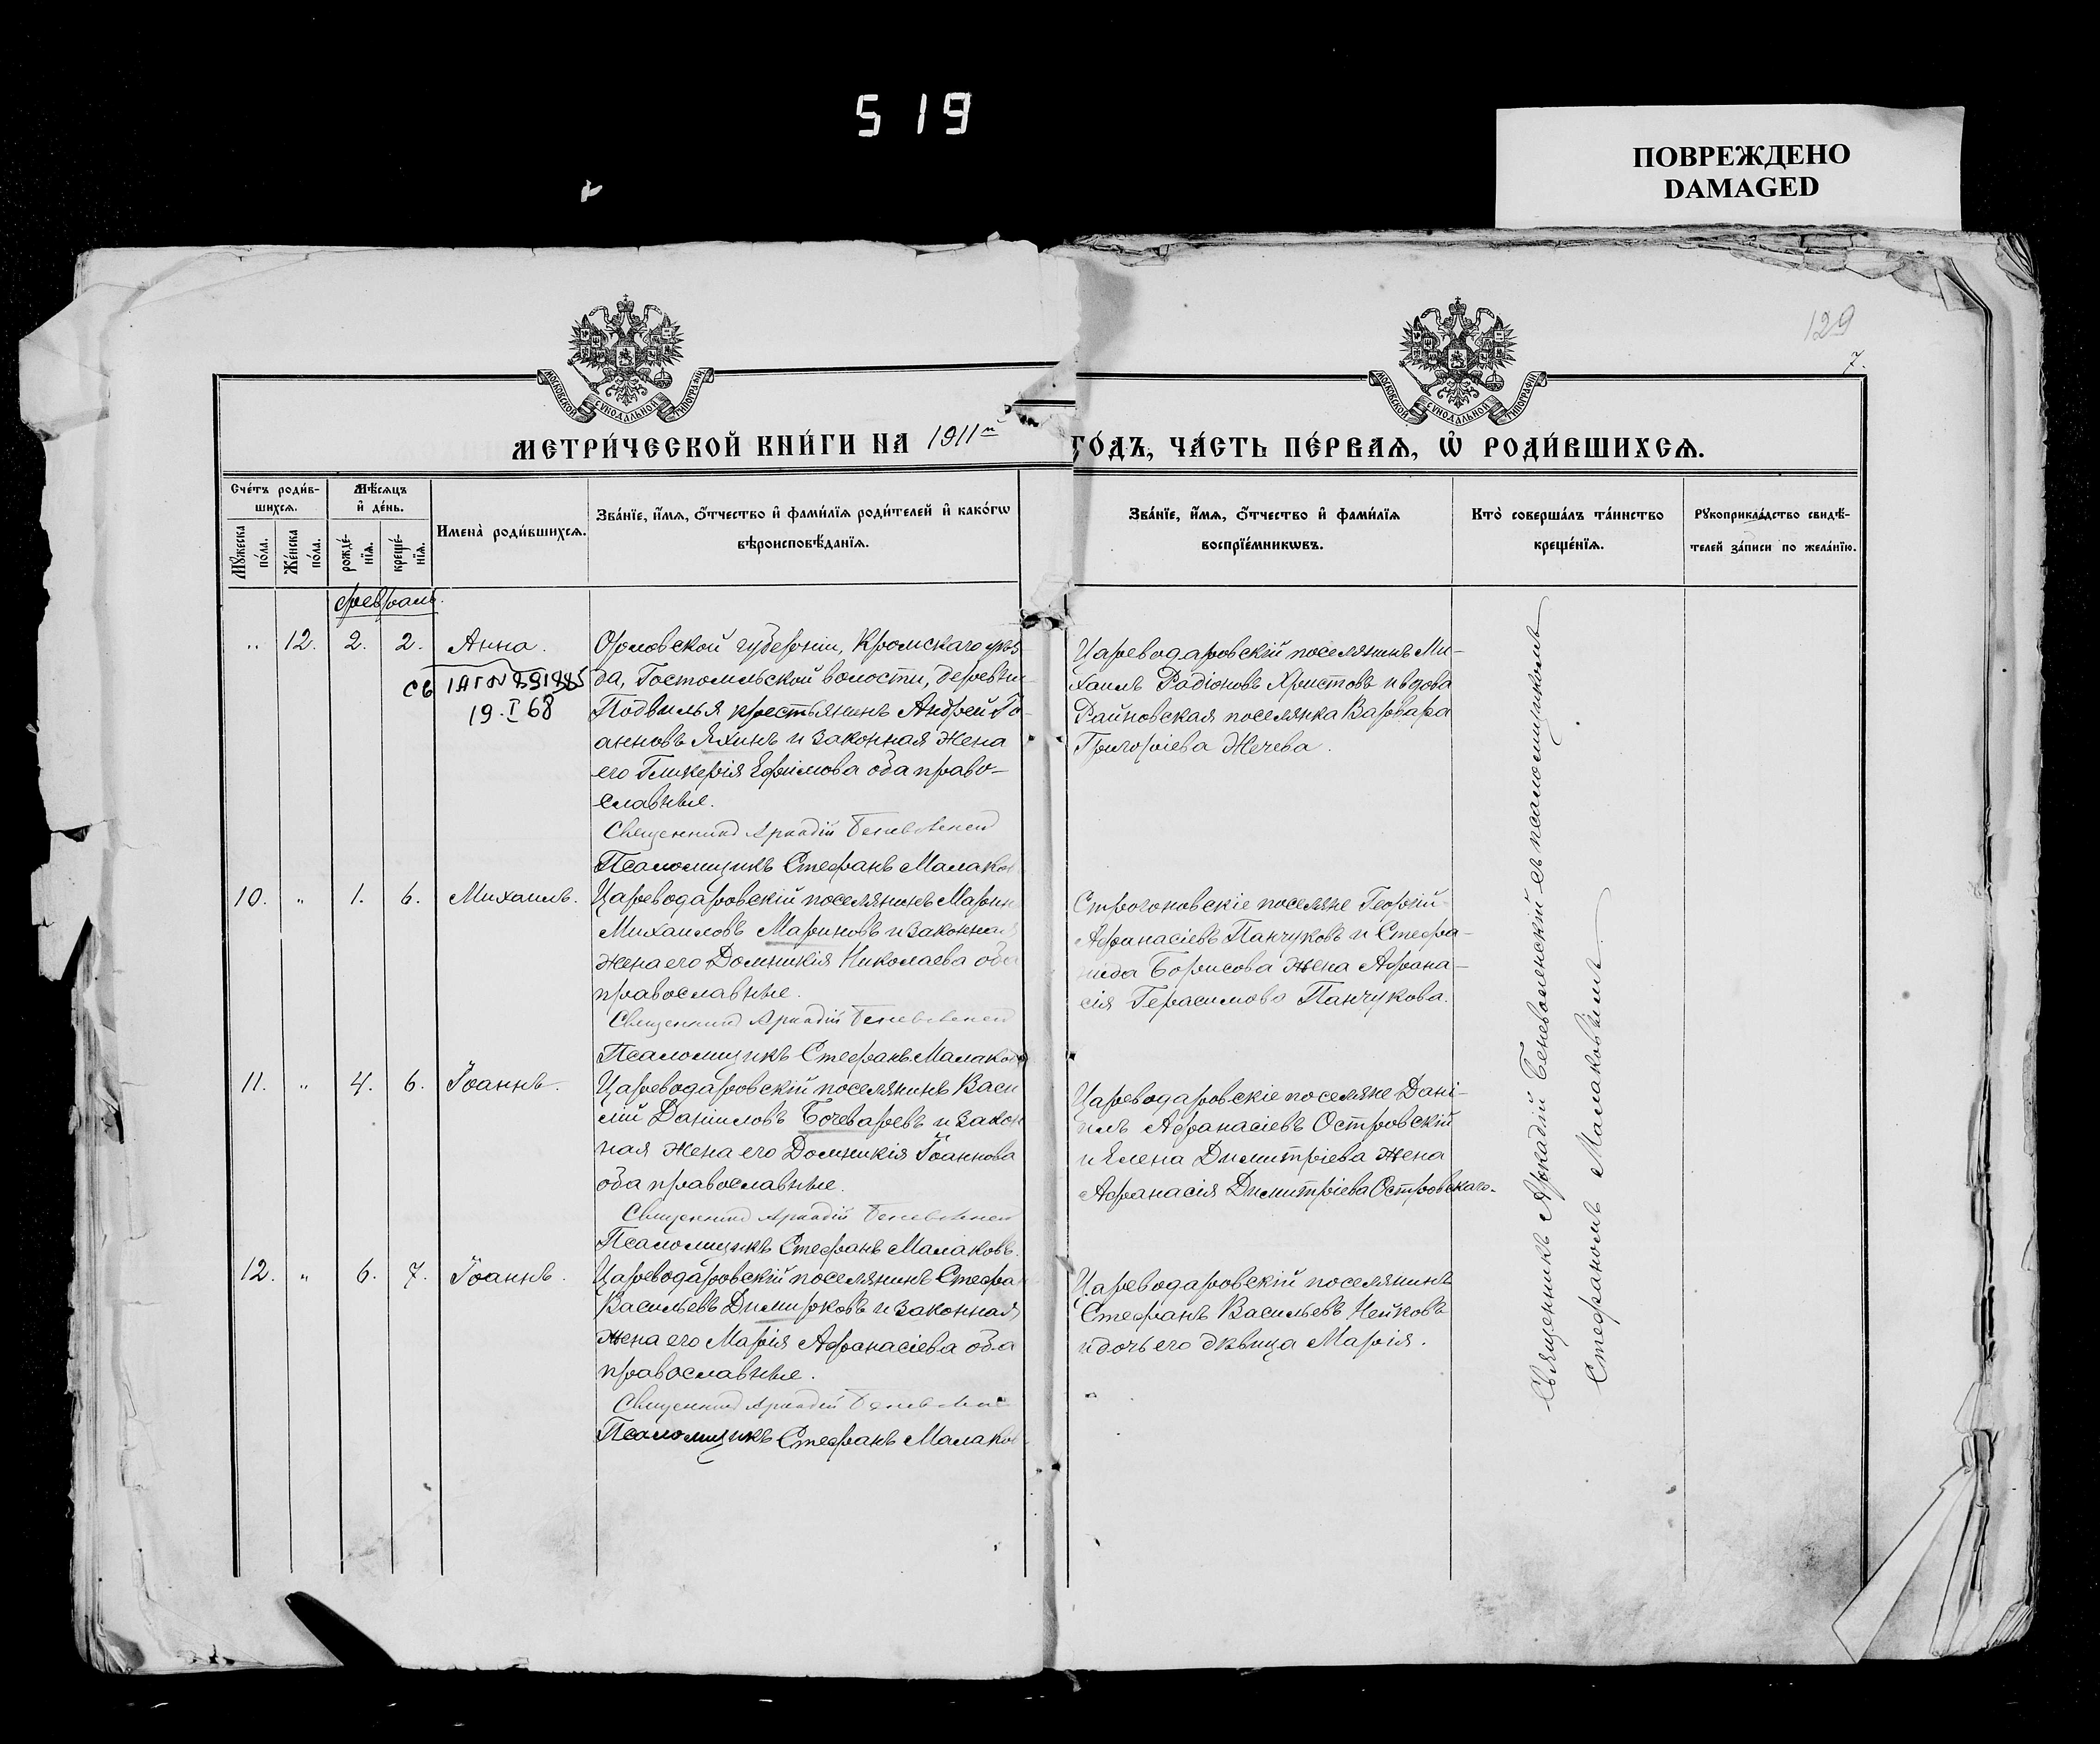 519
ПОВРЕЖДЕНО
DAMAGED
129
7.
МОСКОВСКОЙ СУНОДАЛЬНОЙ ТИПОГРАФІИ
МОСКОВСКОЙ СУНОДАЛЬНОЙ ТИПОГРАФІИ
МЕТРИ́ЧЕСКОЙ КНИ́ГИ НА 1911й
ГО́ДЪ, ЧА́СТЬ ПЕ́РВАѦ, Ѡ҆ РОДИ́ВШИХСѦ.
Сче́тъ роди́в-
шихсѧ.
Мꙋ́жеска по́ла.
Же́нска по́ла.
Мѣ́сѧцъ
и҆ де́нь.
рожде́-
нїѧ.
креще́-
нїѧ.
Имена̀ роди́вшихсѧ.
Зва́нїе, и҆́мѧ, ѻ҆́тчество и҆ фами́лїѧ роди́телей и҆ како́гѡ
вѣроисповѣ́данїѧ.
Зва́нїе, и҆́мѧ, ѻ҆́тчество и҆ фами́лїѧ
воспрїе́мникѡвъ.
Кто̀ соверша́лъ та́инство
креще́нїѧ.
Рꙋкоприкла́дство свидѣ́-
телей за́писи по жела́нїю.
Февраль.
" 12. 2. 2. Анна.
св
19.I 68
Орловской губерніи, Кромскаго уѣз
да, Гостомльской волости, деревни
Подвилья крестьянинъ Андрей Іо-
анновъ Яхинъ и законная жена
его Гликерія Ефимова оба право-
славные.
Священникъ Аркадій Беневоленскій
Псаломщикъ Стефанъ Малаков
Цареводаровскій поселянинъ Ми-
хаилъ Радіоновъ Христовъ и вдова
Райновская поселянка Варвара
Григоріева Жечева.
10. " 1. 6. Михаилъ.
Цареводаровскій поселянинъ Марин
Михаиловъ Мариновъ и законная
жена его Домникія Николаева оба
православные.
Священникъ Аркадій Беневоленскій
Псаломщикъ Стефанъ Малаков
Строгоновскіе поселяне Георгій
Афанасіевъ Панчуковъ и Стефа-
нида Борисова жена Афана-
сія Герасимова Панчукова.
11. " 4. 6. Іоаннъ.
Цареводаровскій поселянинъ Васи
лій Даніиловъ Бочеваревъ и закон
ная жена его Домникія Іоаннова
оба православные.
Священникъ Аркадій Беневоленскій
Псаломщикъ Стефанъ Малаковъ.
Цареводаровскіе поселяне Дані-
илъ Афанасіевъ Островскій
и Елена Димитріева жена
Афанасія Димитріева Островскаго.
12. " 6. 7. Іоаннъ.
Цареводаровскій поселянинъ Стефа
Васильевъ Димирковъ и законная
жена его Марія Афанасіева оба
православные.
Священникъ Аркадій Беневоленскій
Псаломщикъ Стефанъ Малаков
Цареводаровскій поселянинъ
Стефанъ Васильевъ Нейковъ
и дочь его дѣвица Марія.
Священникъ Аркадій Беневоленскій съ псаломщикомъ
Стефаномъ Малаковымъ.